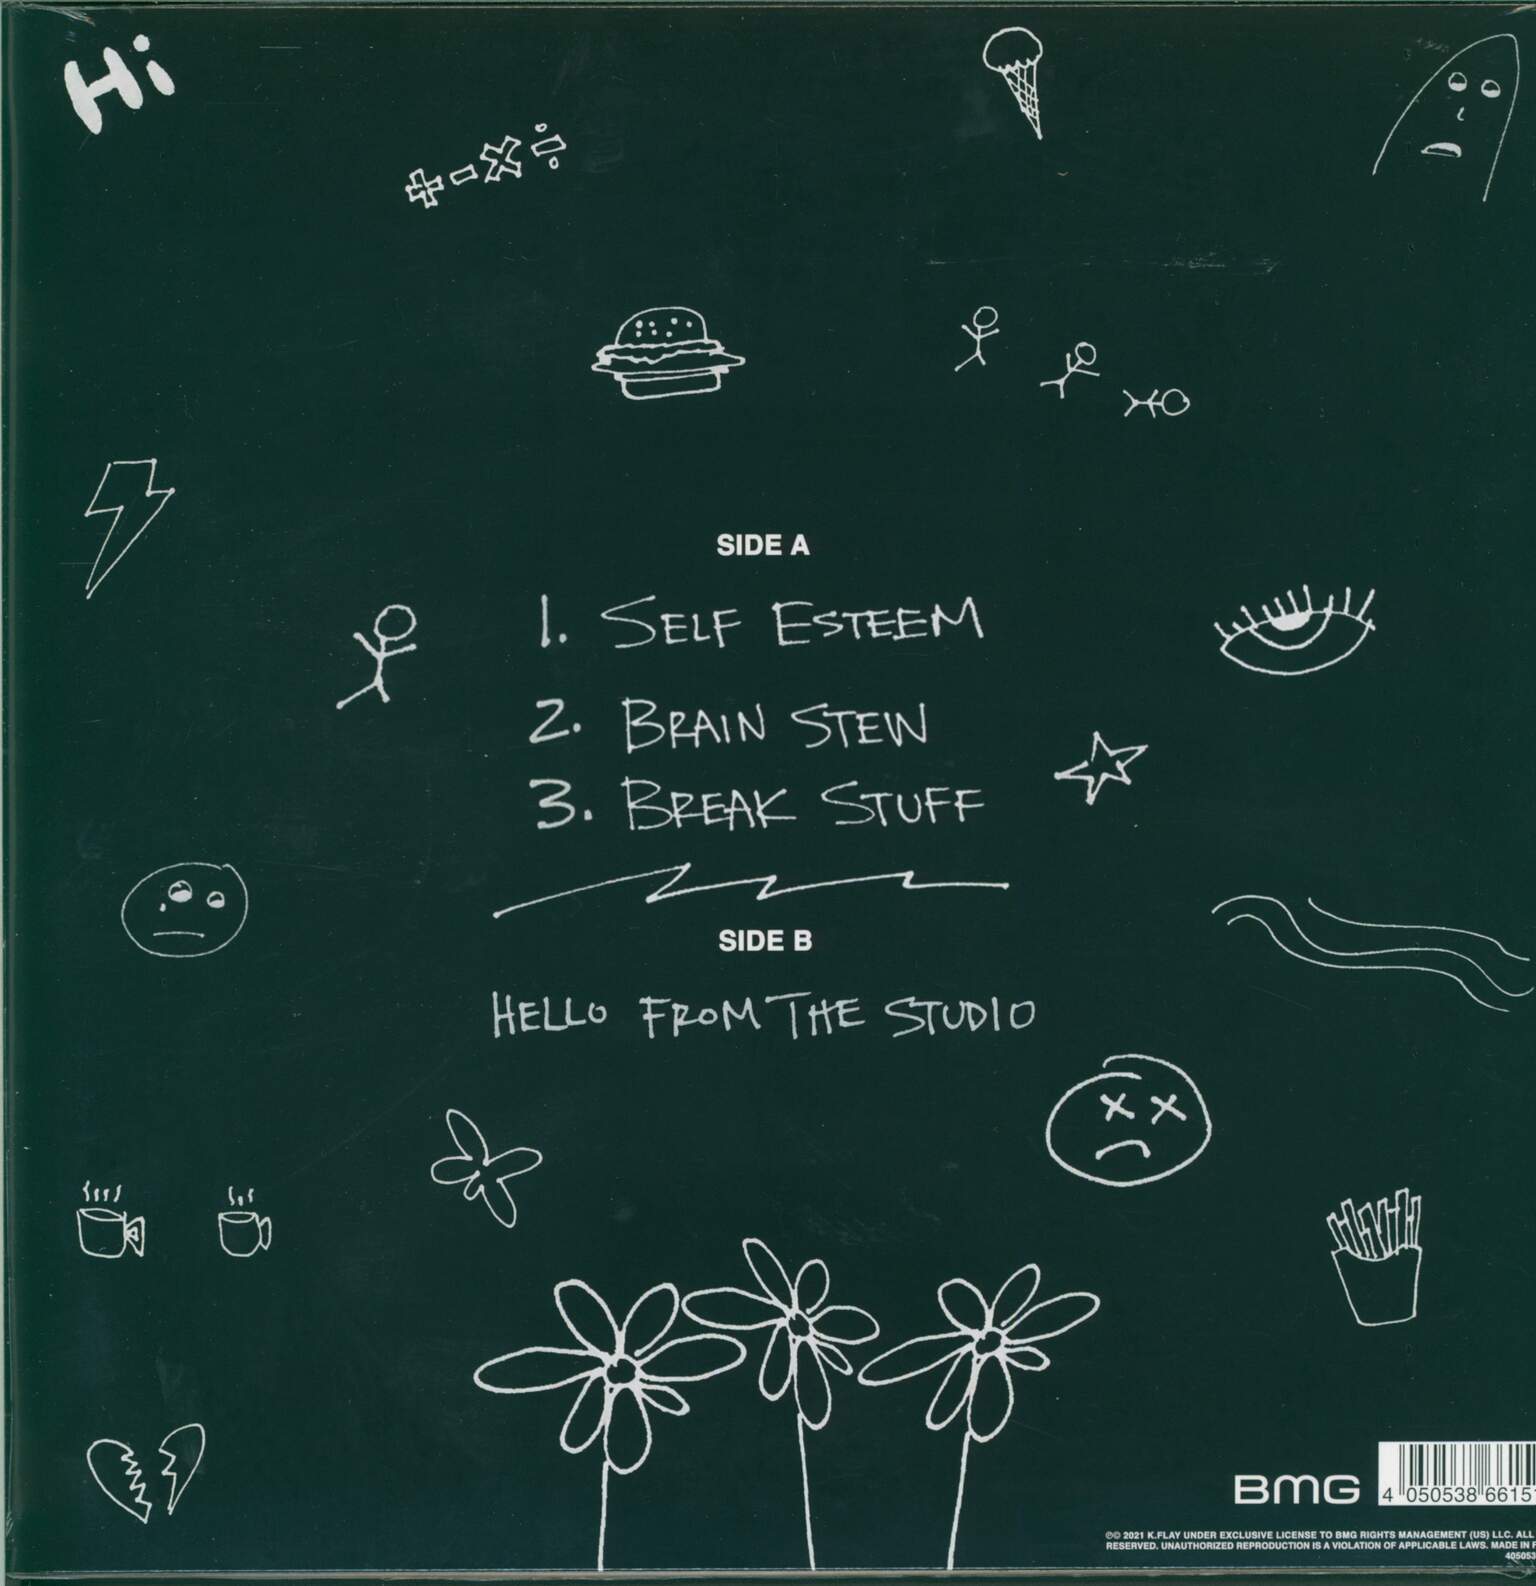 Hi
+ - x ÷
SIDE A
1. SELF ESTEEM
2. BRAIN STEW
3. BREAK STUFF
SIDE B
HELLO FROM THE STUDIO
BMG
4 050538 6615
℗© 2021 K.FLAY UNDER EXCLUSIVE LICENSE TO BMG RIGHTS MANAGEMENT (US) LLC. ALL
RESERVED. UNAUTHORIZED REPRODUCTION IS A VIOLATION OF APPLICABLE LAWS. MADE IN
405053